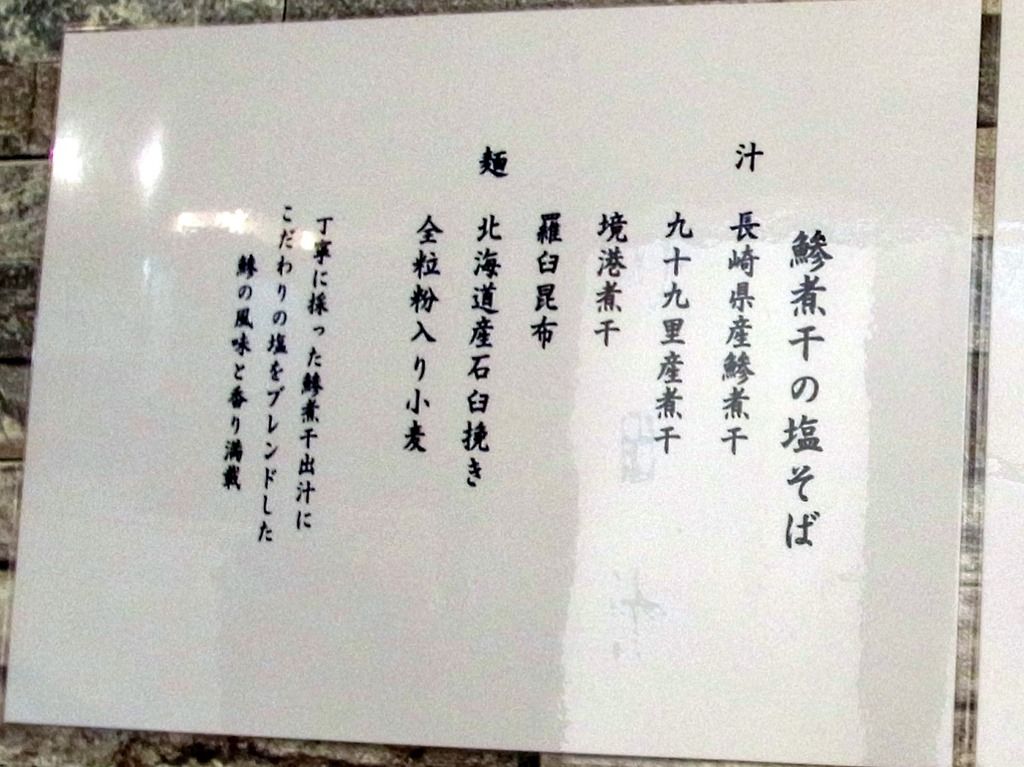 鯵煮干の塩そば
汁 長崎県産鯵煮干
九十九里産煮干
境港煮干
羅臼昆布
麺 北海道産石臼挽き
全粒粉入り小麦
丁寧に採った鯵煮干出汁に
こだわりの塩をブレンドした
鯵の風味と香り満載